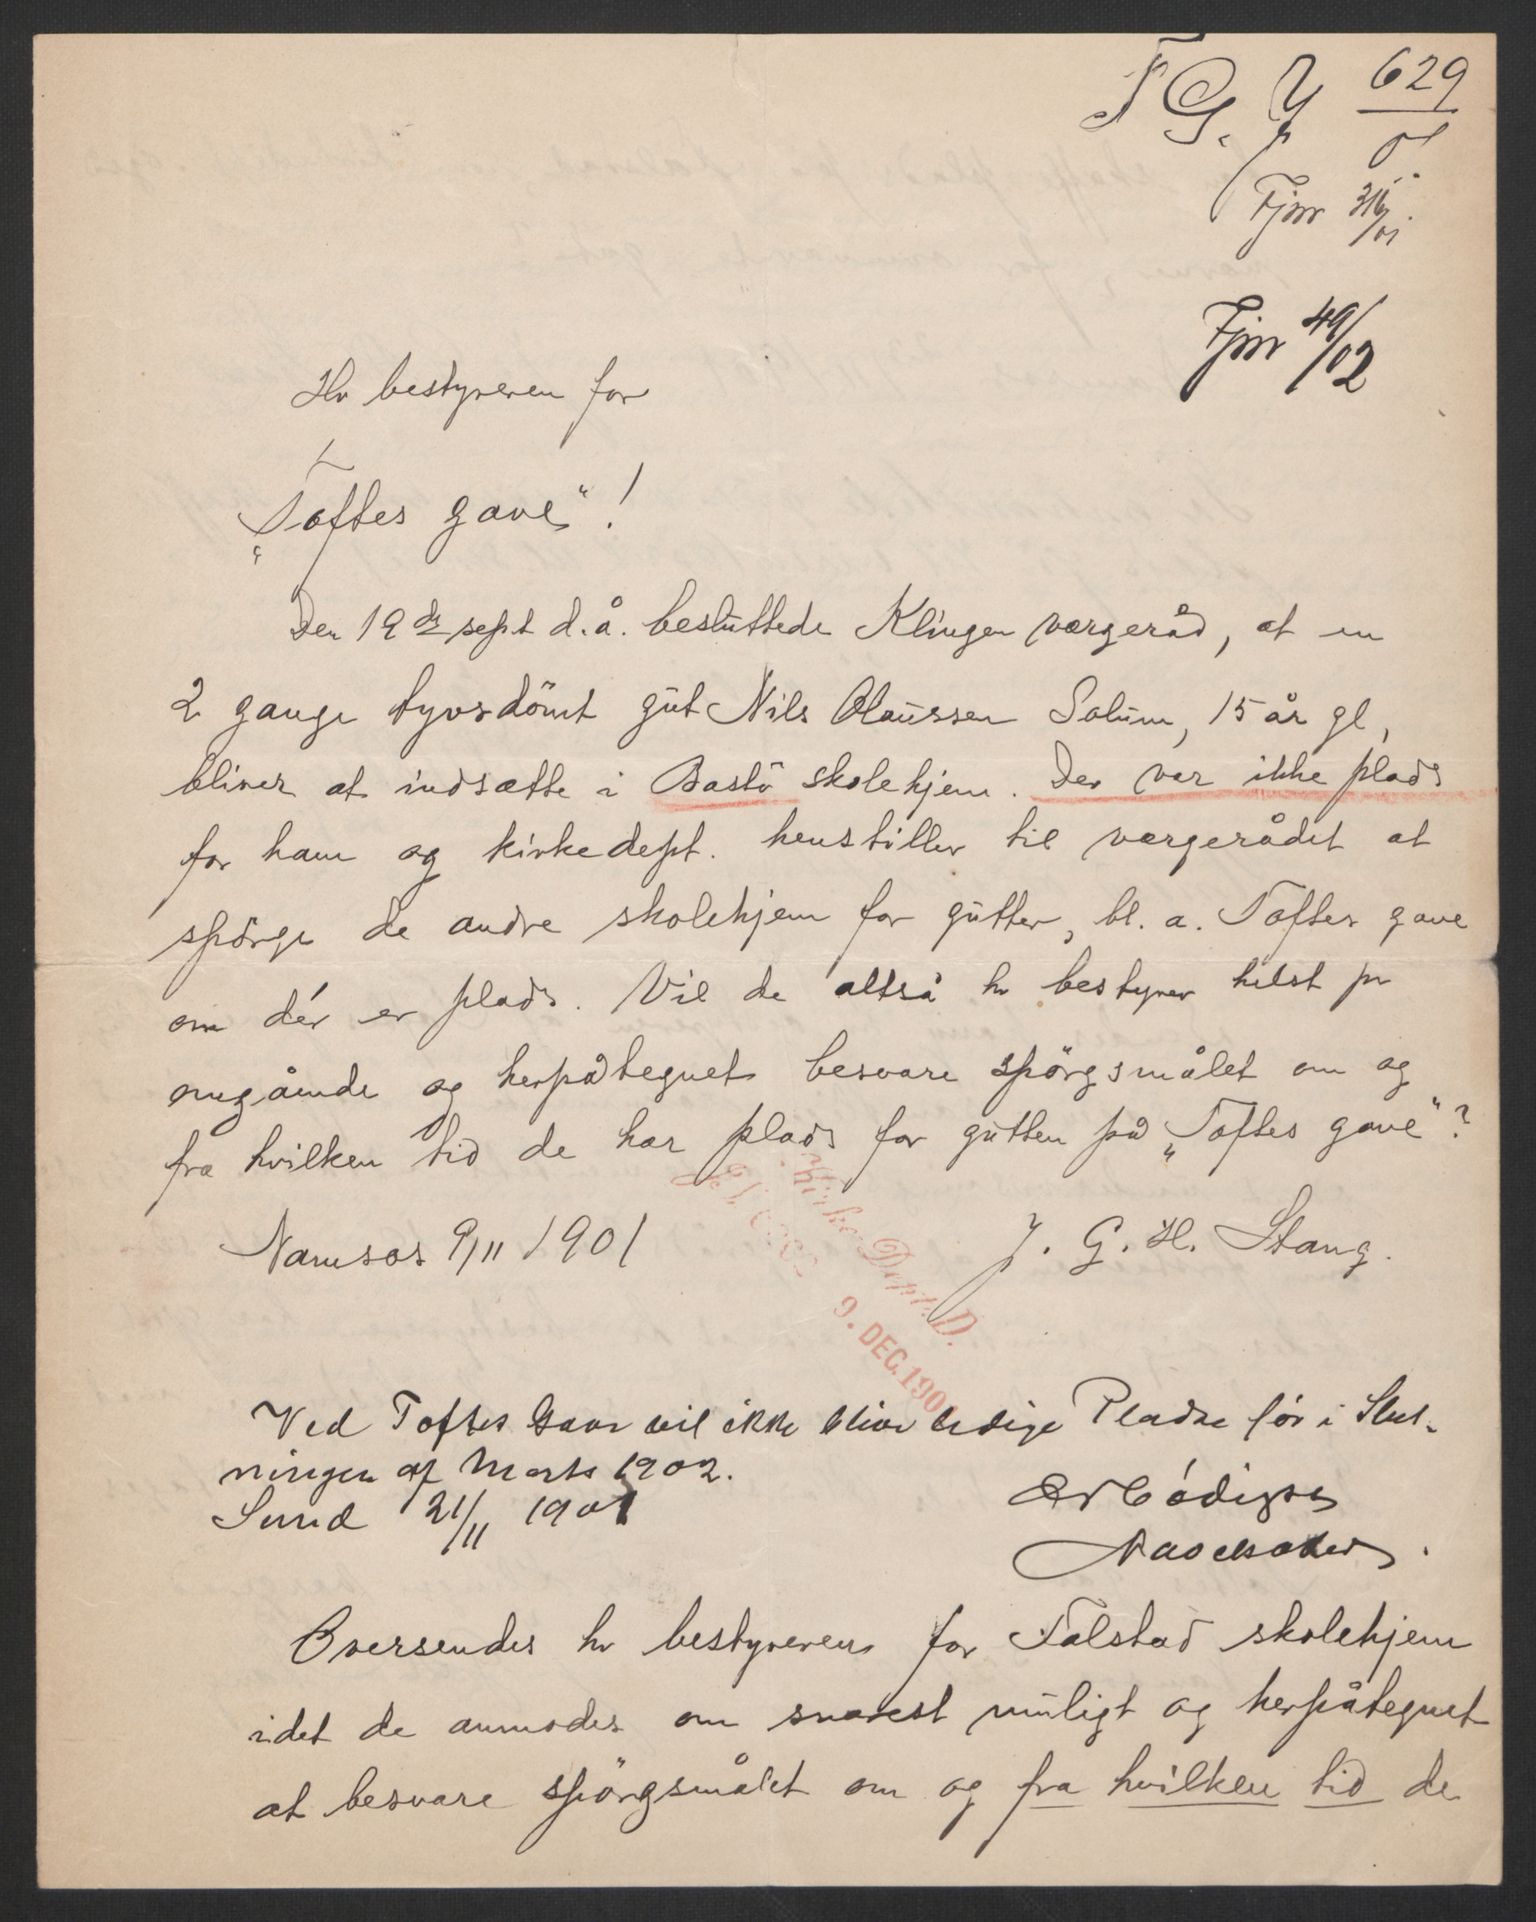 T G. 629
01
Fjnr 316/01
Fjnr 49/02
Hr bestyreren for
"Toftes gave"!
Den 19de sept d.å. besluttede Klingen værgeråd, at en
2 gange tyvsdömt gut Nils Olaussen Solum, 15 år gl,
bliver at indsætte i Bastö skolehjem. Der var ikke plads
for ham og kirkedept. henstiller til værgerådet at
spörge de andre skolehjem for gutter, bl. a. Toftes gave
om dér er plads. Vil de altså hr bestyrer helst pr
omgående og herpåtegnet besvare spörgsmålet om og
fra hvilken tid de har plads for gutten på "Toftes gave"?
Namsos 9/11 1901 J. G. H. Stang.
Kirke-Dept. D.
9. DEC. 1901
Ved Toftes Gave vil ikke blive ledige Pladse før i Slut-
ningen af Marts 1902.
Sund 21/11 1901 Ærbødigst
Oversendes hr bestyreren for Falstad skolehjem
idet de anmodes om snarest muligt og herpåtegnet
at besvare spörgsmålet om og fra hvilken tid de